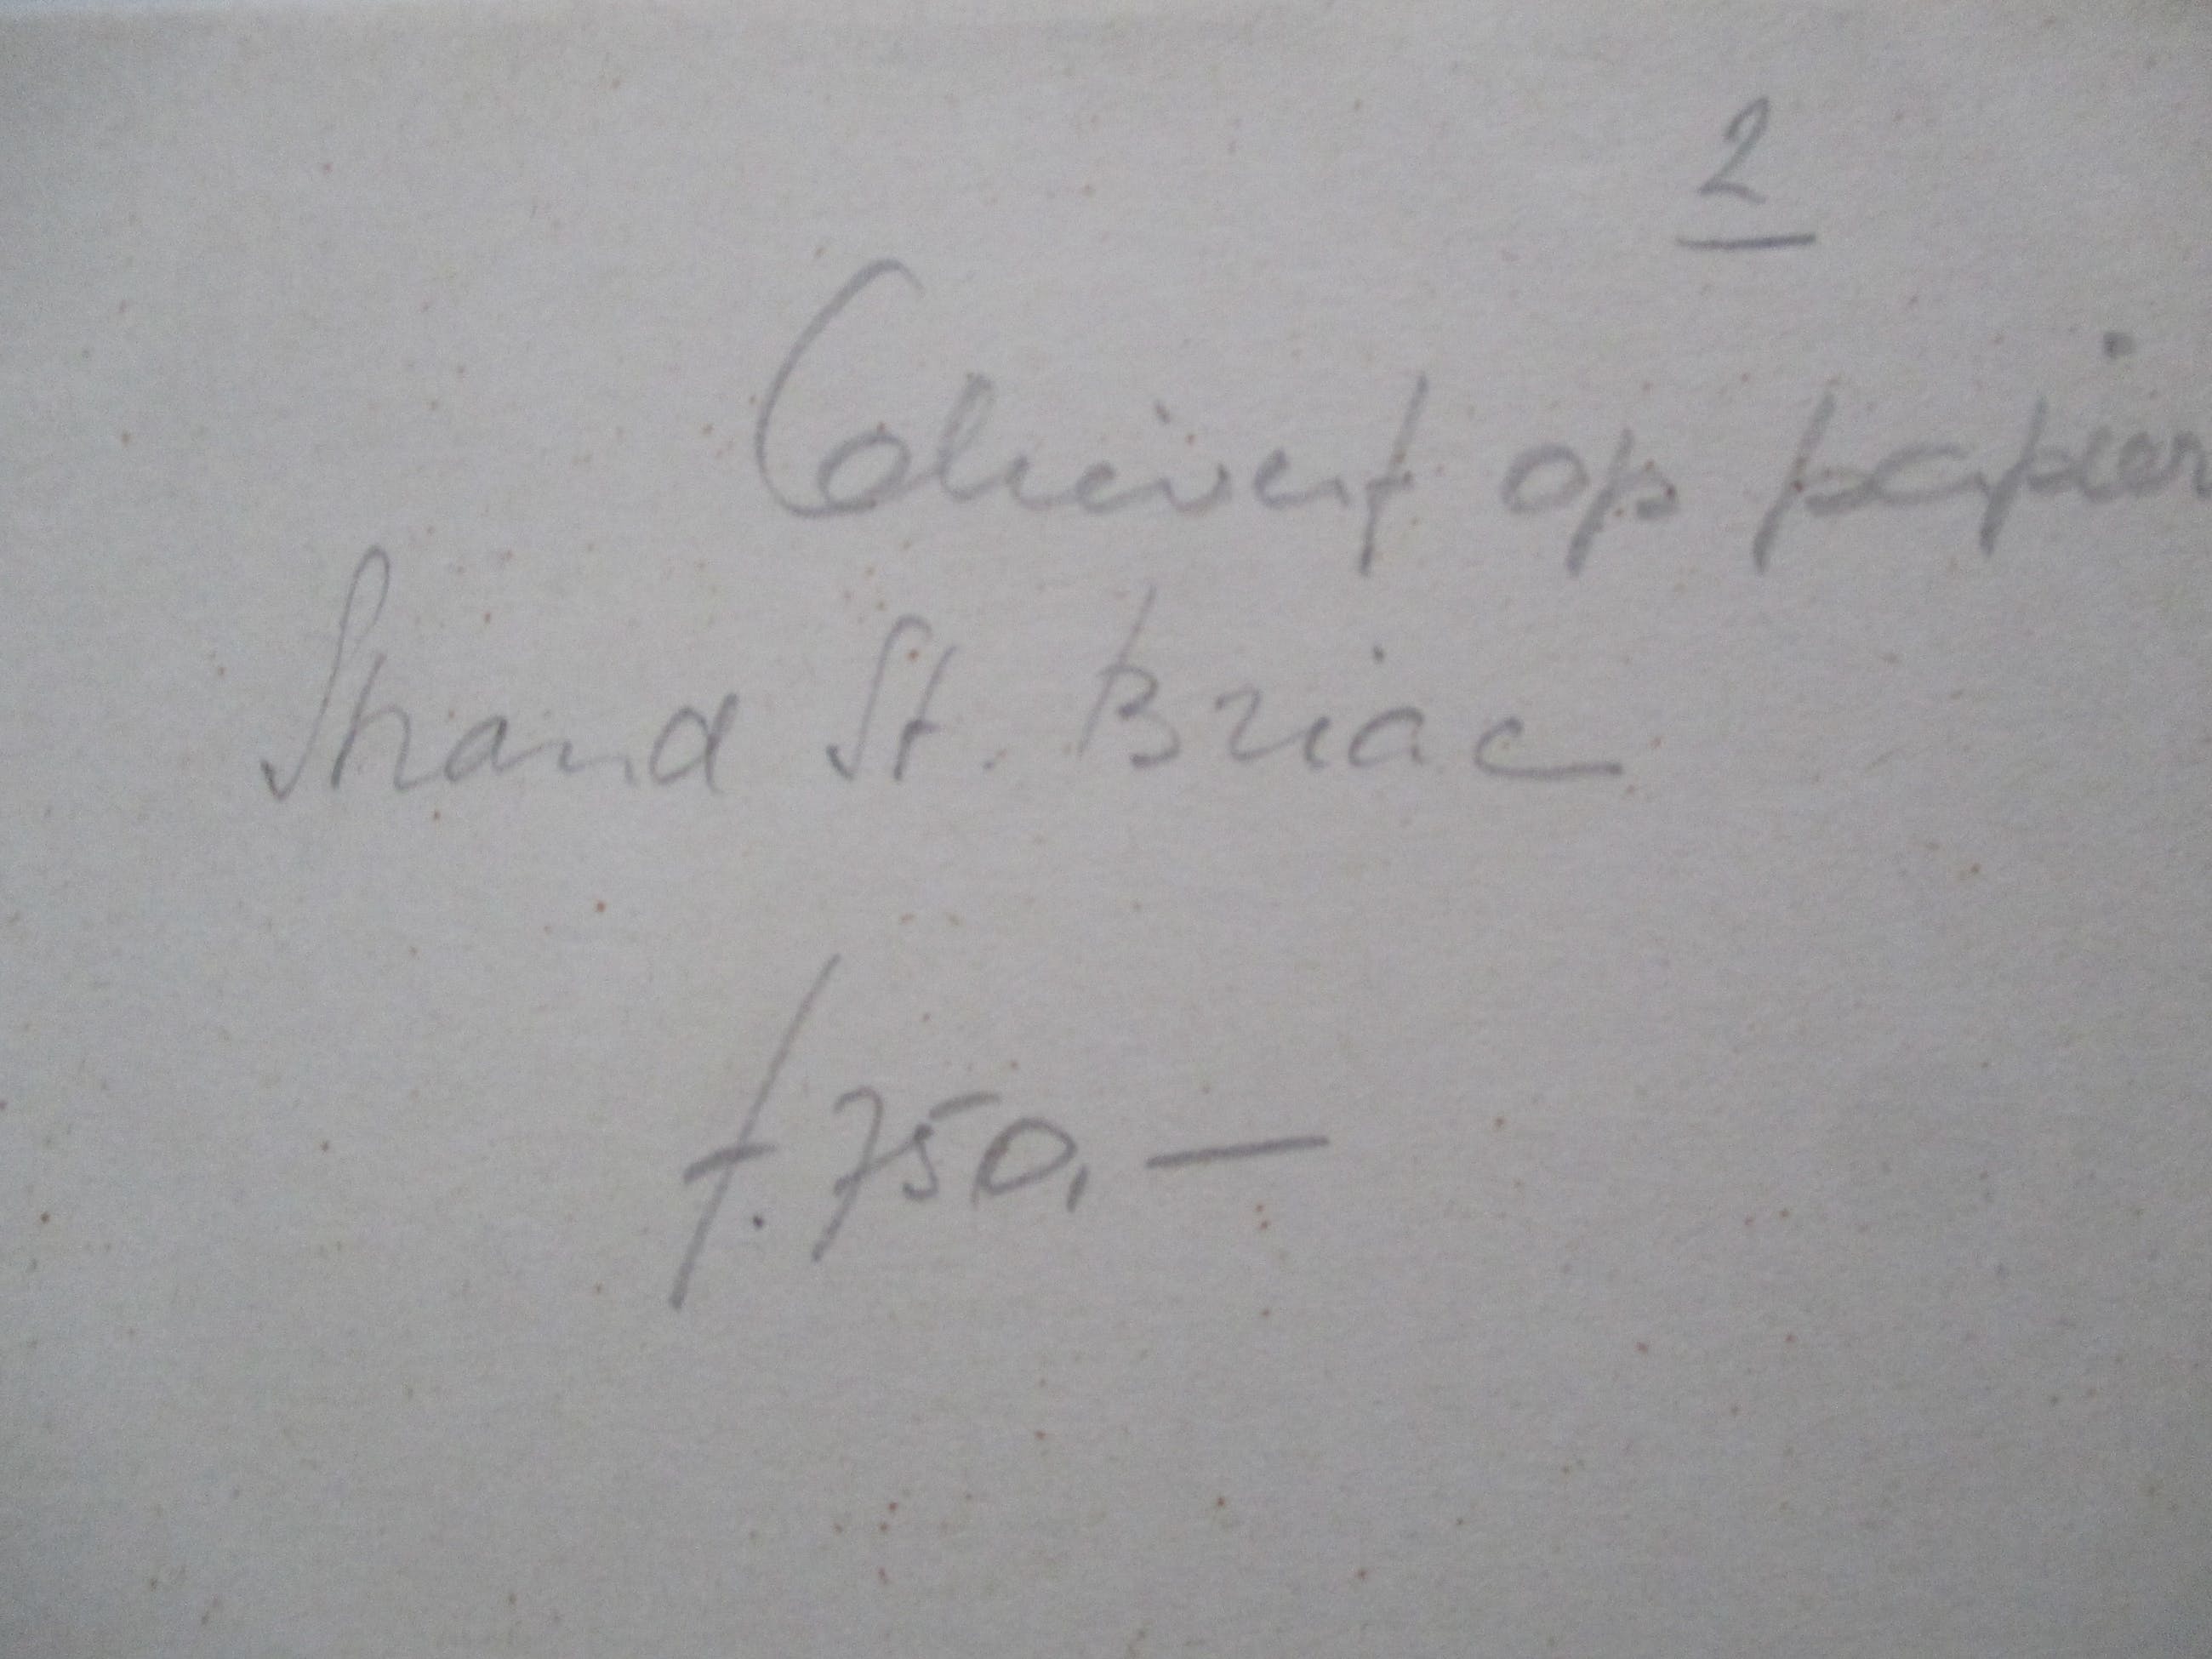 2
Olieverf op papier
Strand St. Briac
f. 750,—